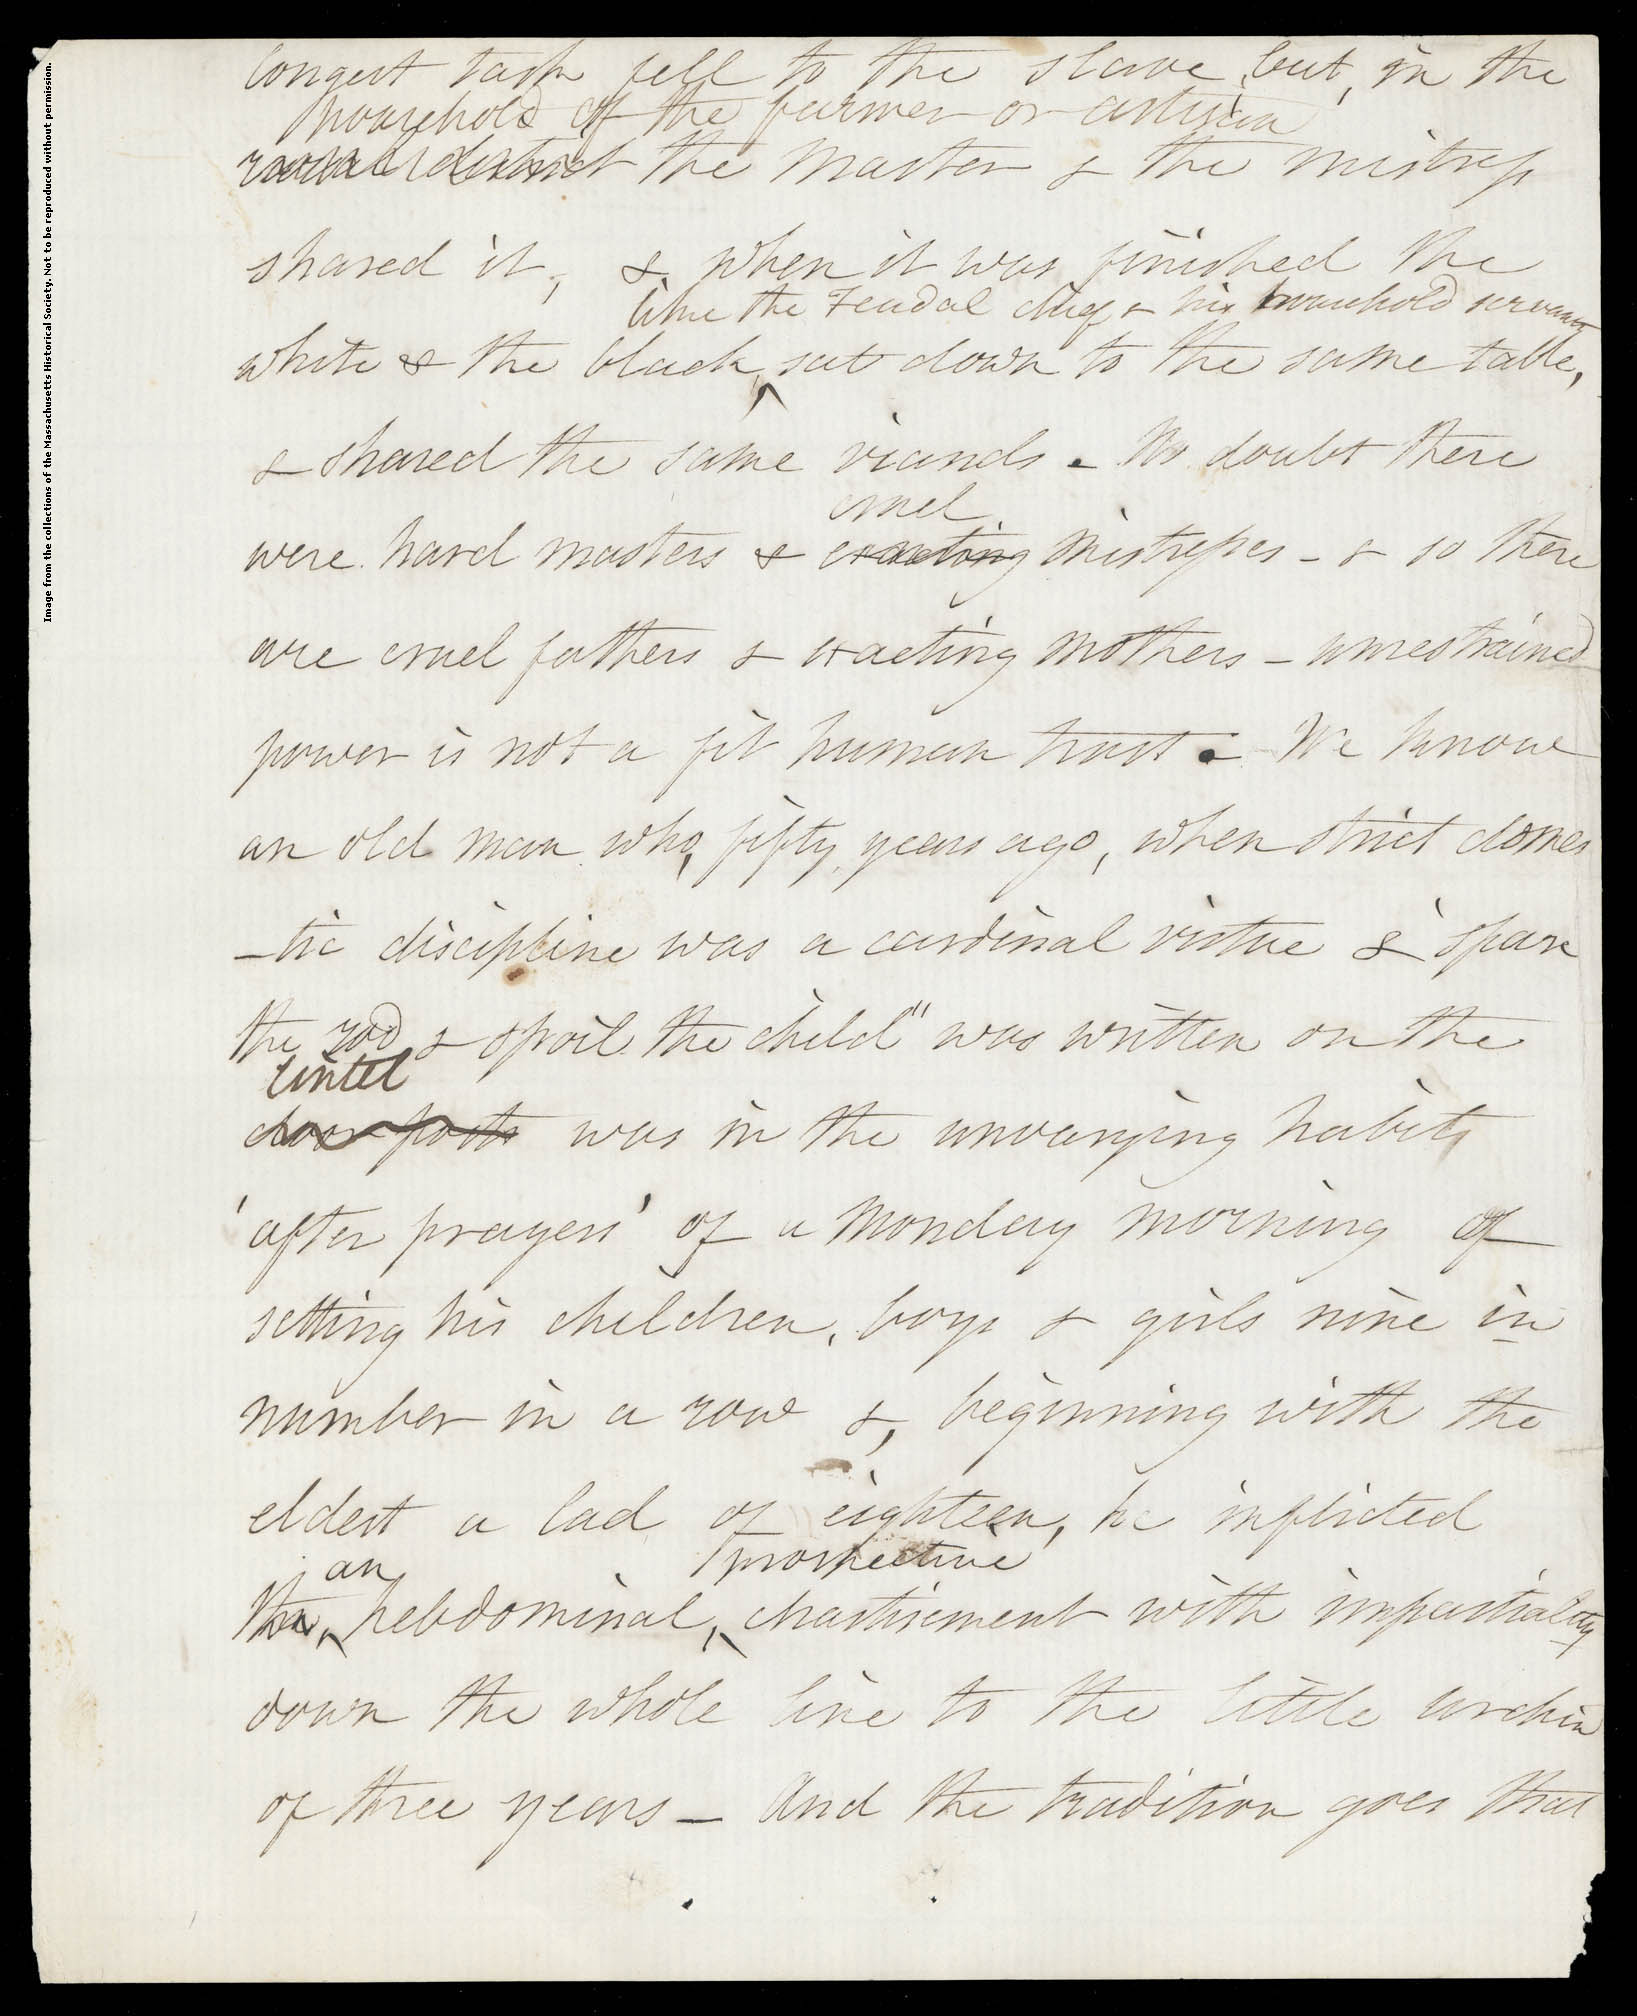 Image from the collections of the Massachusetts Historical Society. Not to be reproduced without permission.
longest task fell to the slave, but, in the
household of the farmer or artisan
rural district the master & the mistress
shared it, & when it was finished the
like the Feudal chief & his household servants
white & the black, sat down to the same table,
& shared the same viands - No doubt there
cruel
were hard masters & exacting mistresses - & so there
are cruel fathers & exacting mothers - unrestrained
power is not a fit human trust. We know
an old man who, fifty years ago, when strict domes
-tic discipline was a cardinal virtue & 'spare
the rod & spoil the child" was written on the
lintel
door posts was in the unvarying habit,
'after prayers' of a Monday morning of
setting his children, boys & girls nine in
number in a row &, beginning with the
eldest a lad of eighteen, he inflicted
an prospective
the, hebdominal, chastisement with impartiality
down the whole line to the little urchin
of three years - And the tradition goes that